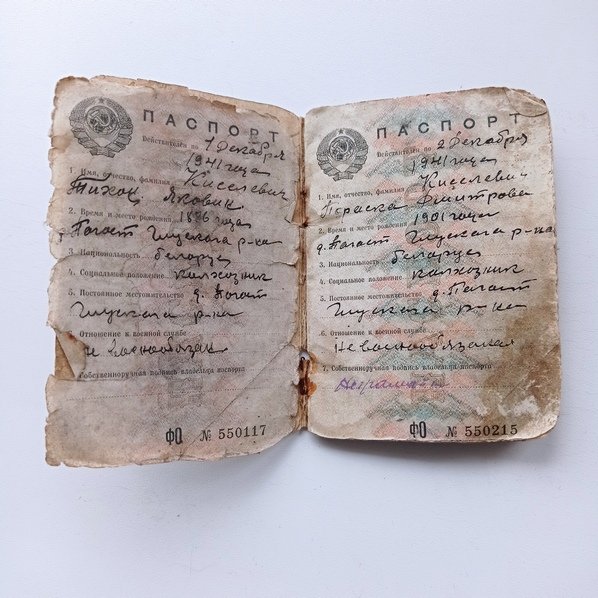 ПАСПОРТ
Действителен по 1 Декабря
1941 года
1. Имя, отчество, фамилия Киселевич
Тихон Якович
2. Время и место рождения 1896 года
Погост Глусского р-ка
3. Национальность беларус
4. Социальное положение колхозник
5. Постоянное местожительство д. Погост
Глусского р-ка
6. Отношение к военной службе
не военнообязан
7. Собственноручная подпись владельца паспорта
ФО № 550117
ПАСПОРТ
Действителен по 2 Декабря
1941 года
1. Имя, отчество, фамилия Киселевич
Параска Дмитрова
2. Время и место рождения 1901 года
д. Погост Глусского р-ка
3. Национальность беларус
4. Социальное положение колхозник
5. Постоянное местожительство д. Погост
Глусского р-ка
6. Отношение к военной службе
Не военнообязаная
7. Собственноручная подпись владельца паспорта
ФО № 550215